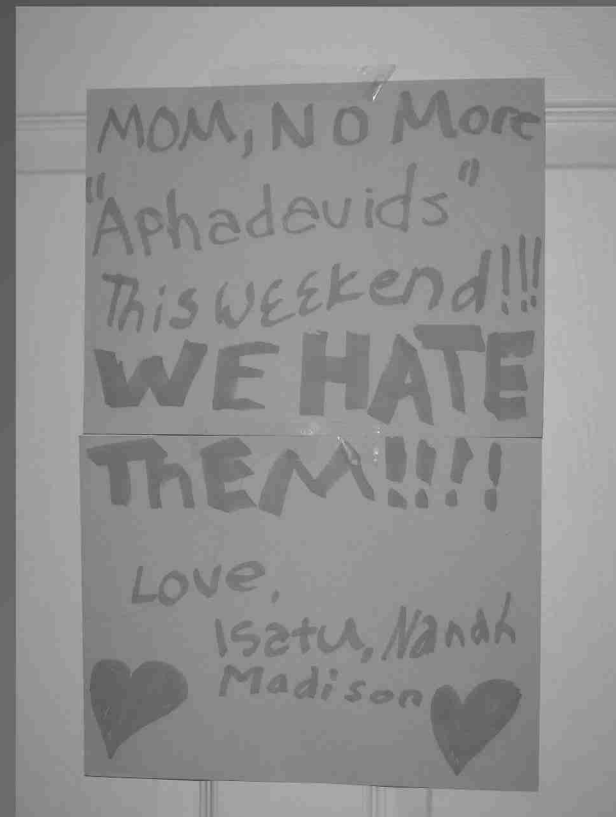 MOM, NO More
"Aphadavids"
This WEEkend!!!
WE HATE
ThEM!!!!
Love,
Isatu, Nanah
Madison